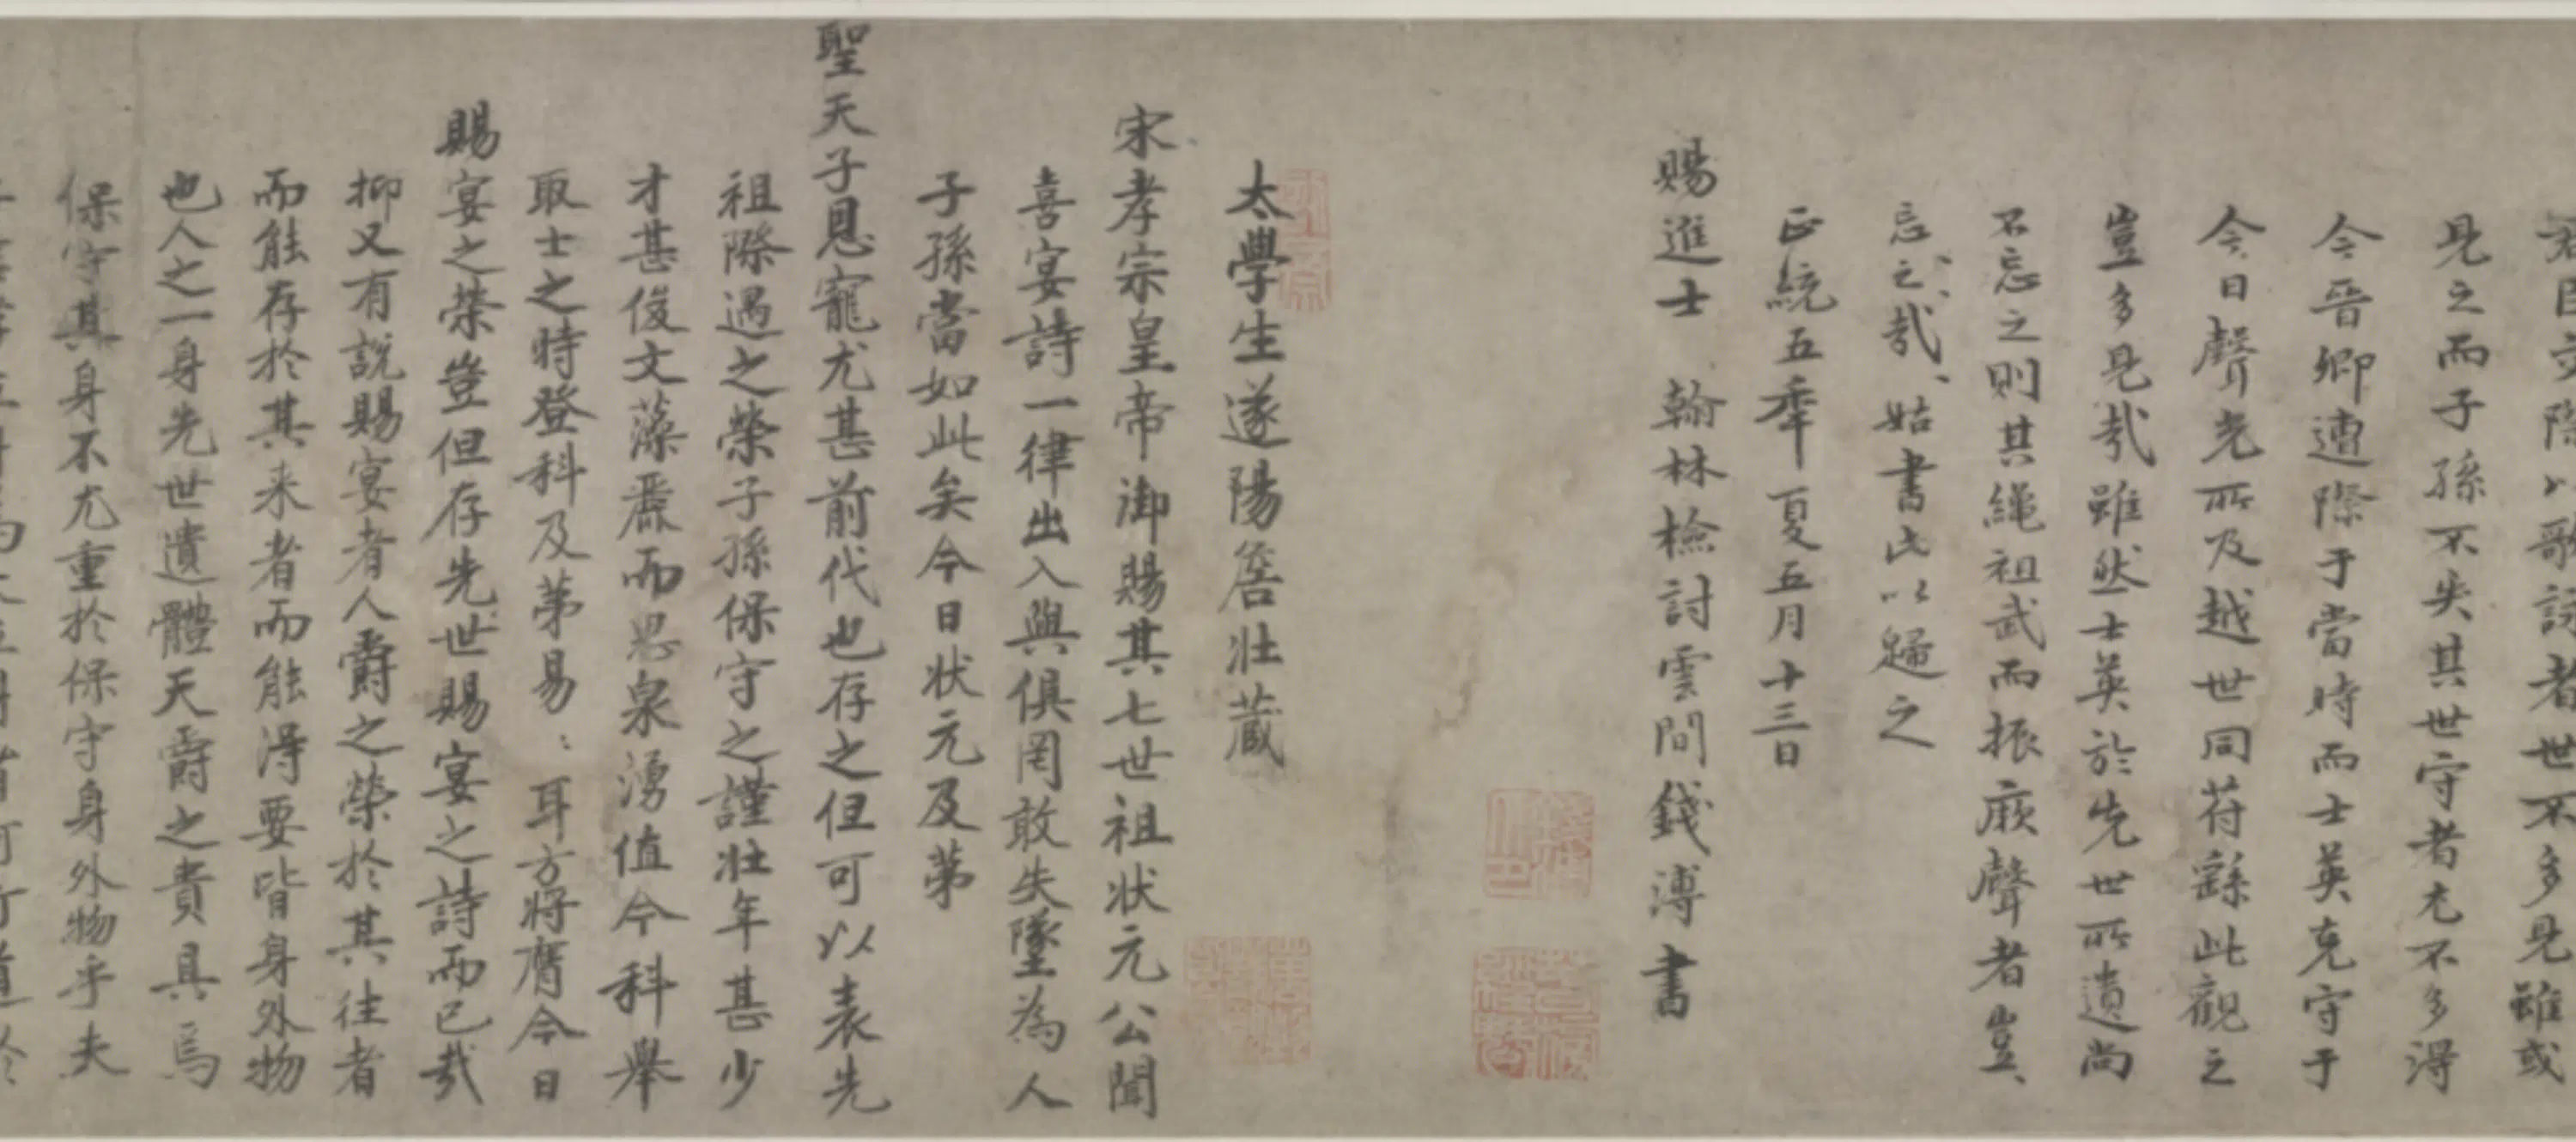 君臣交際以歌詩者世不多見雖或
見之而子孫不失其世守者尤不多得
今晉卿遭際于當時而士英克守于
今日聲光所及越世同符繇此觀之
豈多見哉雖然士英於先世所遺尚
不忘之則其繩祖武而振厥聲者豈
忘之哉姑書此以歸之
正統五年夏五月十三日
賜進士翰林檢討雲間錢溥書
太學生遂陽詹壯蔵
宋孝宗皇帝御賜其七世祖状元公聞
喜宴詩一律出入與俱罔敢失墜為人
子孫當如此矣今日状元及苐
聖天子恩寵尤甚前代也存之但可以表先
祖際遇之榮子孫保守之謹壯年甚少
才甚俊文藻麗而思泉湧值今科舉
取士之時登科及苐易〻耳方將膺今日
賜宴之榮豈但存先世賜宴之詩而已哉
抑又有說賜宴者人爵之榮於其往者
而能存於其来者而能淂要皆身外物
也人之一身先世遺體天爵之貴具焉
保守其身不尤重於保守身外物乎夫